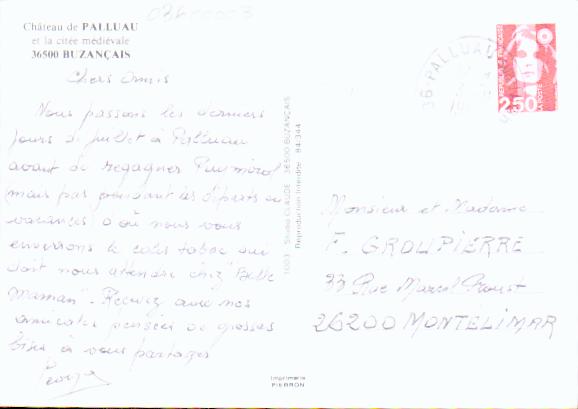 03600003
Château de PALLUAU
et la citée mediévale
36500 BUZANÇAIS
Chers Amis
Nous passons les derniers
jours de juillet à Palluau
avant de regagner Puymirol
mais pas pendant les départs en
vacances d'où nous vous
envoyons le
doit nous attendre chez "Belle
Maman". Recevez avec nos
amicales pensées de grosses
bises à vous partager
36 PALLUAU
REPUBLIQUE FRANÇAISE
2,50
LA POSTE
1003 Studio CLAUDE 36500 BUZANÇAIS
Reproduction Interdite 84/344
Monsieur et Madame
F. GROUPIERRE
33 Rue Marcel Proust
26200 MONTELIMAR
Imprimerie
PIERRON